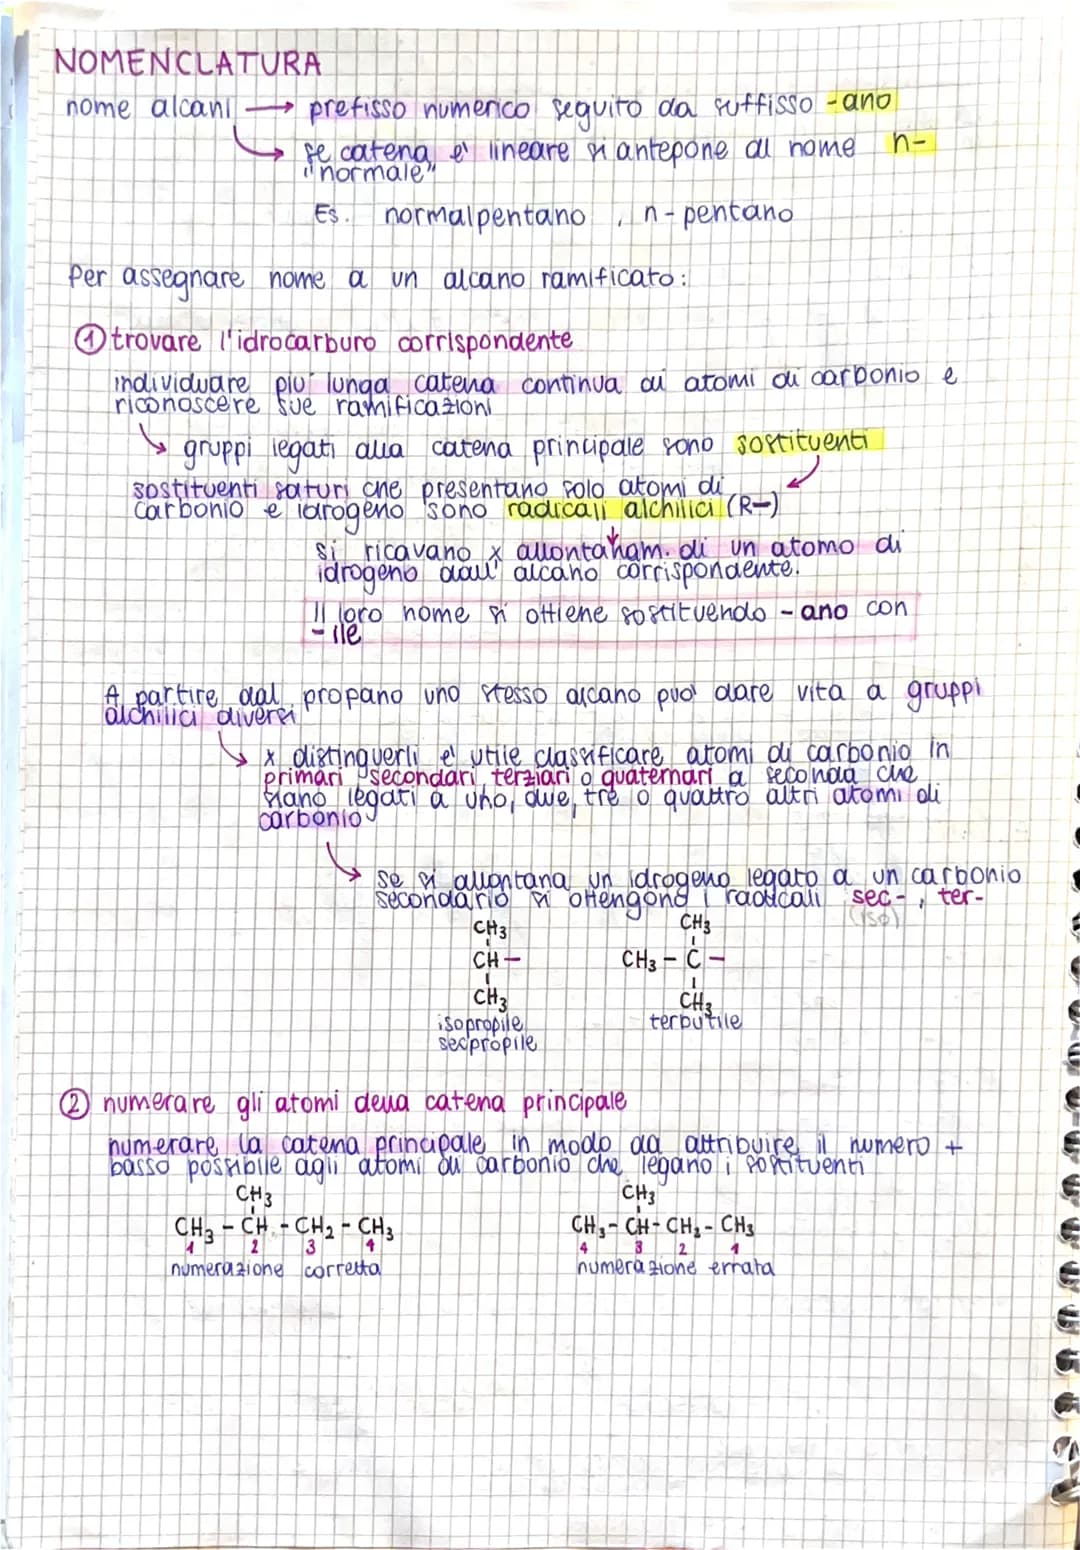 NOMENCLATURA
nome alcani → prefisso numerico seguito da suffisso -ano
se catena e' lineare si antepone al nome n-
"normale"
Es. normalpentano, n-pentano
Per assegnare nome a un alcano ramificato:
① trovare l'idrocarburo corrispondente
individuare piu' lunga catena continua di atomi di carbonio e
riconoscere sue ramificazioni
gruppi legati alla catena principale sono sostituenti
sostituenti saturi che presentano solo atomi di
carbonio e idrogeno sono radicali alchilici (R-)
si ricavano x allontanam. di un atomo di
idrogeno dall' alcano corrispondente.
Il loro nome si ottiene sostituendo -ano con
-ile
A partire dal propano uno stesso alcano puo' dare vita a gruppi
alchilici diversi
x distinguerli e' utile classificare atomi di carbonio in
primari secondari, terziari o quaternari a seconda che
siano legati a uno, due, tre o quattro altri atomi di
carbonio
se si allontana un idrogeno legato a un carbonio
secondario si ottengono i radicali sec-, ter-
(iso)
CH3 CH3
CH- CH3 - C -
CH3 CH3
isopropile terbutile
secpropile
② numerare gli atomi della catena principale
numerare la catena principale in modo da attribuire il numero +
basso possibile agli atomi di carbonio che legano i sostituenti
CH3 CH3
CH3 - CH - CH2 - CH3 CH3 - CH - CH2 - CH3
1 2 3 4 4 3 2 1
numerazione corretta numerazione errata